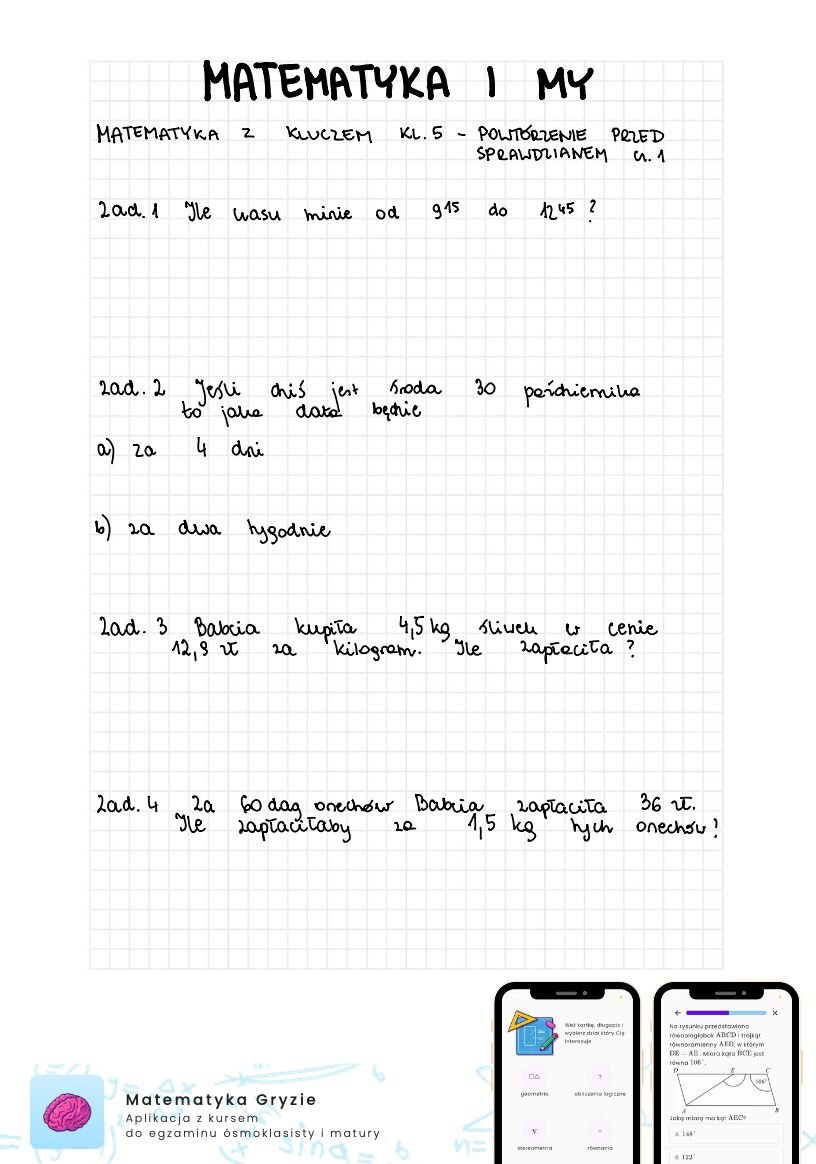 MATEMATYKA I MY
MATEMATYKA Z KLUCZEM KL. 5 - POWTÓRZENIE PRZED
SPRAWDZIANEM cz. 1
Zad. 1 Ile czasu minie od 9¹⁵ do 12⁴⁵ ?
Zad. 2 Jeśli dziś jest środa 30 października
to jaka data będzie
a) za 4 dni
b) za dwa tygodnie
Zad. 3 Babcia kupiła 4,5 kg śliwek w cenie
12,8 zł za kilogram. Ile zapłaciła ?
Zad. 4 Za 60 dag orzechów Babcia zapłaciła 36 zł.
Ile zapłaciłaby za 1,5 kg tych orzechów?
Matematyka Gryzie
Aplikacja z kursem
do egzaminu ósmoklasisty i matury
Weź kartkę, długopis i
wybierz dział który Cię
interesuje
geometria
obliczenia logiczne
stereometria
równania
Na rysunku przedstawiono
równoległobok ABCD i trójkąt
równoramienny AED, w którym
DE = AE. Miara kąta BCE jest
równa 106°.
D E C
106°
A B
Jaką miarę ma kąt AEC?
A 148°
B 122°